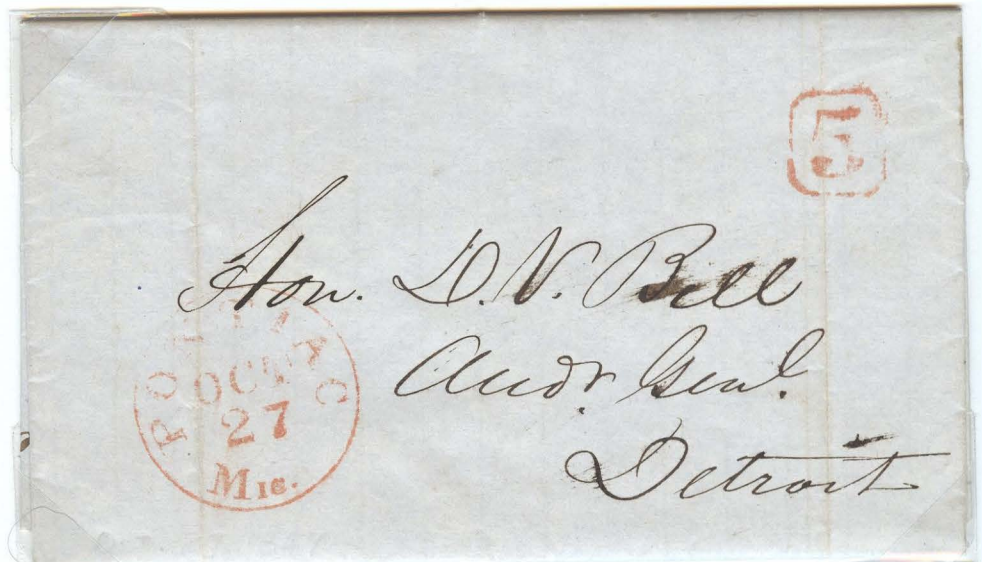 5
Hon. D. V. Bell
Audr. Genl.
Detroit
PONTIAC
OCT
27
Mic.